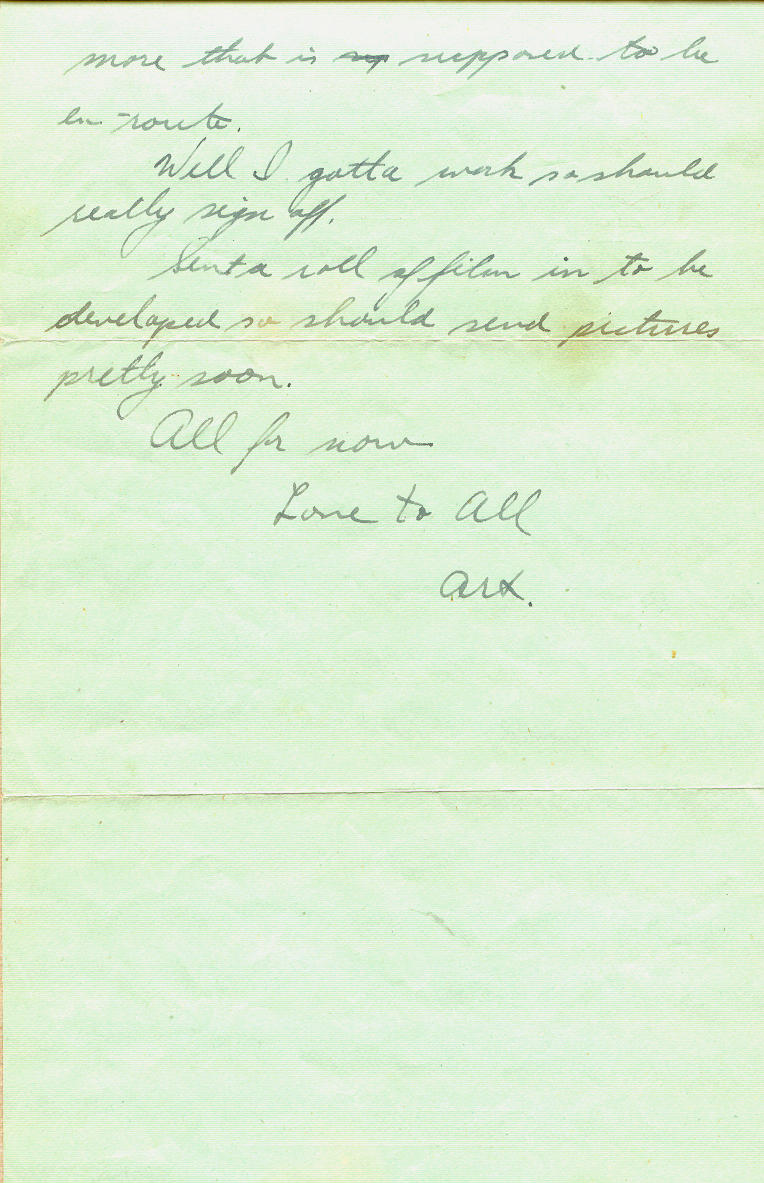 more that is sup supposed to be
en-route.
Well I gotta work so should
really sign off.
Sent a roll of film in to be
developed so should send pictures
pretty soon.
All for now
Love to All
Art.